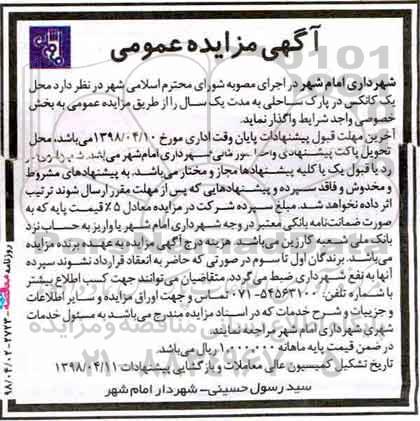 آگهی مزایده عمومی
شهرداری امام شهر در اجرای مصوبه شورای محترم اسلامی شهر در نظر دارد محل
یک کانکس در پارک ساحلی به مدت یک سال را از طریق مزایده عمومی به بخش
خصوصی واجد شرایط واگذار نماید.
آخرین مهلت قبول پیشنهادات پایان وقت اداری مورخ ۱۳۹۸/۰۴/۱۰ می‌باشد، محل
تحویل پاکت پیشنهادی شهرداری امام شهر می‌باشد
رد یا قبول یک یا کلیه پیشنهادها مجاز و مختار می‌باشد. به پیشنهادهای مشروط
و مخدوش و فاقد سپرده و پیشنهادهایی که پس از مهلت مقرر ارسال شوند ترتیب
اثر داده نخواهد شد. مبلغ سپرده شرکت در مزایده معادل ۵٪ قیمت پایه که به
صورت ضمانت‌نامه بانکی معتبر در وجه شهرداری امام شهر یا واریز به حساب نزد
بانک ملی شعبه کارزین می‌باشد. هزینه درج آگهی مزایده به عهده برنده مزایده
می‌باشد. برندگان اول تا سوم در صورتی که حاضر به انعقاد قرارداد نشوند سپرده
آنها به نفع شهرداری ضبط می‌گردد. متقاضیان می‌توانند جهت کسب اطلاع بیشتر
با شماره تلفن: ۵۴۵۶۳۱۰۰-۰۷۱ تماس و جهت اوراق مزایده و سایر اطلاعات
و جزییات و شرح خدمات که در اسناد مزایده مندرج می‌باشد به مسئول خدمات
شهری شهرداری امام شهر مراجعه نمایند.
در ضمن قیمت پایه ماهانه ریال می‌باشد.
تاریخ تشکیل کمیسیون عالی معاملات و بازگشایی پیشنهادات ۱۳۹۸/۰۴/۱۱
سید رسول حسینی- شهردار امام شهر